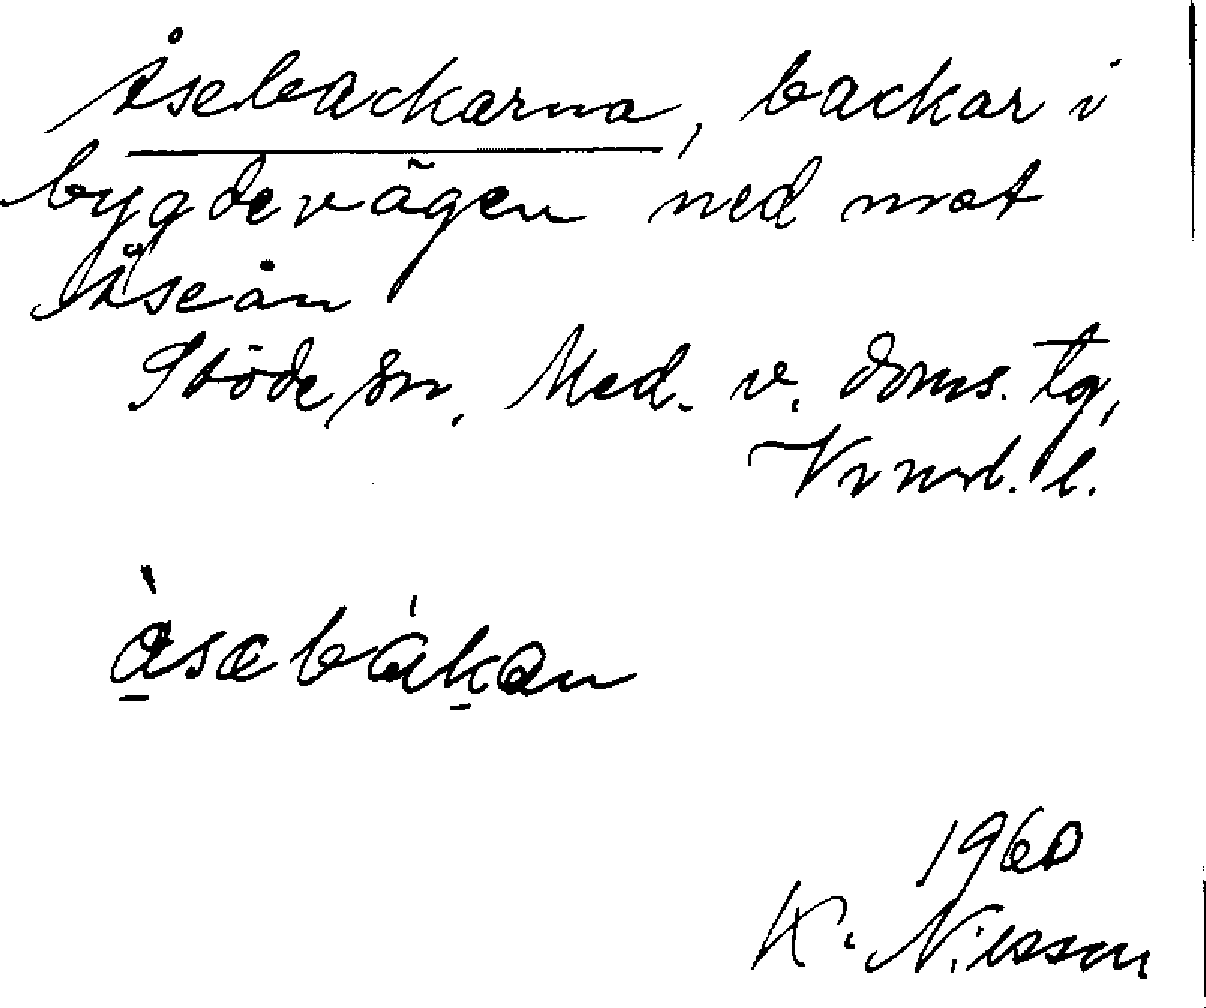 Åsebackarna, backar i
bygdevägen ned mot
Åseån
Stöde sn, Med. v. doms. tg,
Vrnrl. l.
àsebákan
1960
K. Nilsson